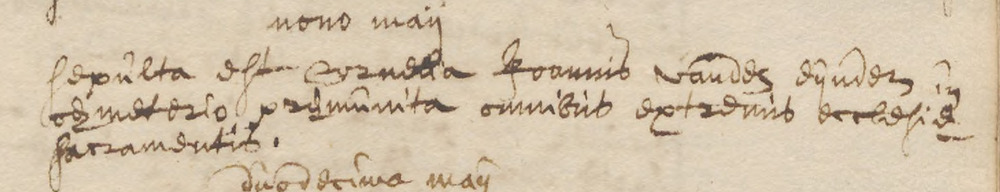 nono maij
sepulta est Cornelia Joannis vander eijnden in
cemeterio premunita omnibus extremis ecclesie
sacramentis.
duodecima maij